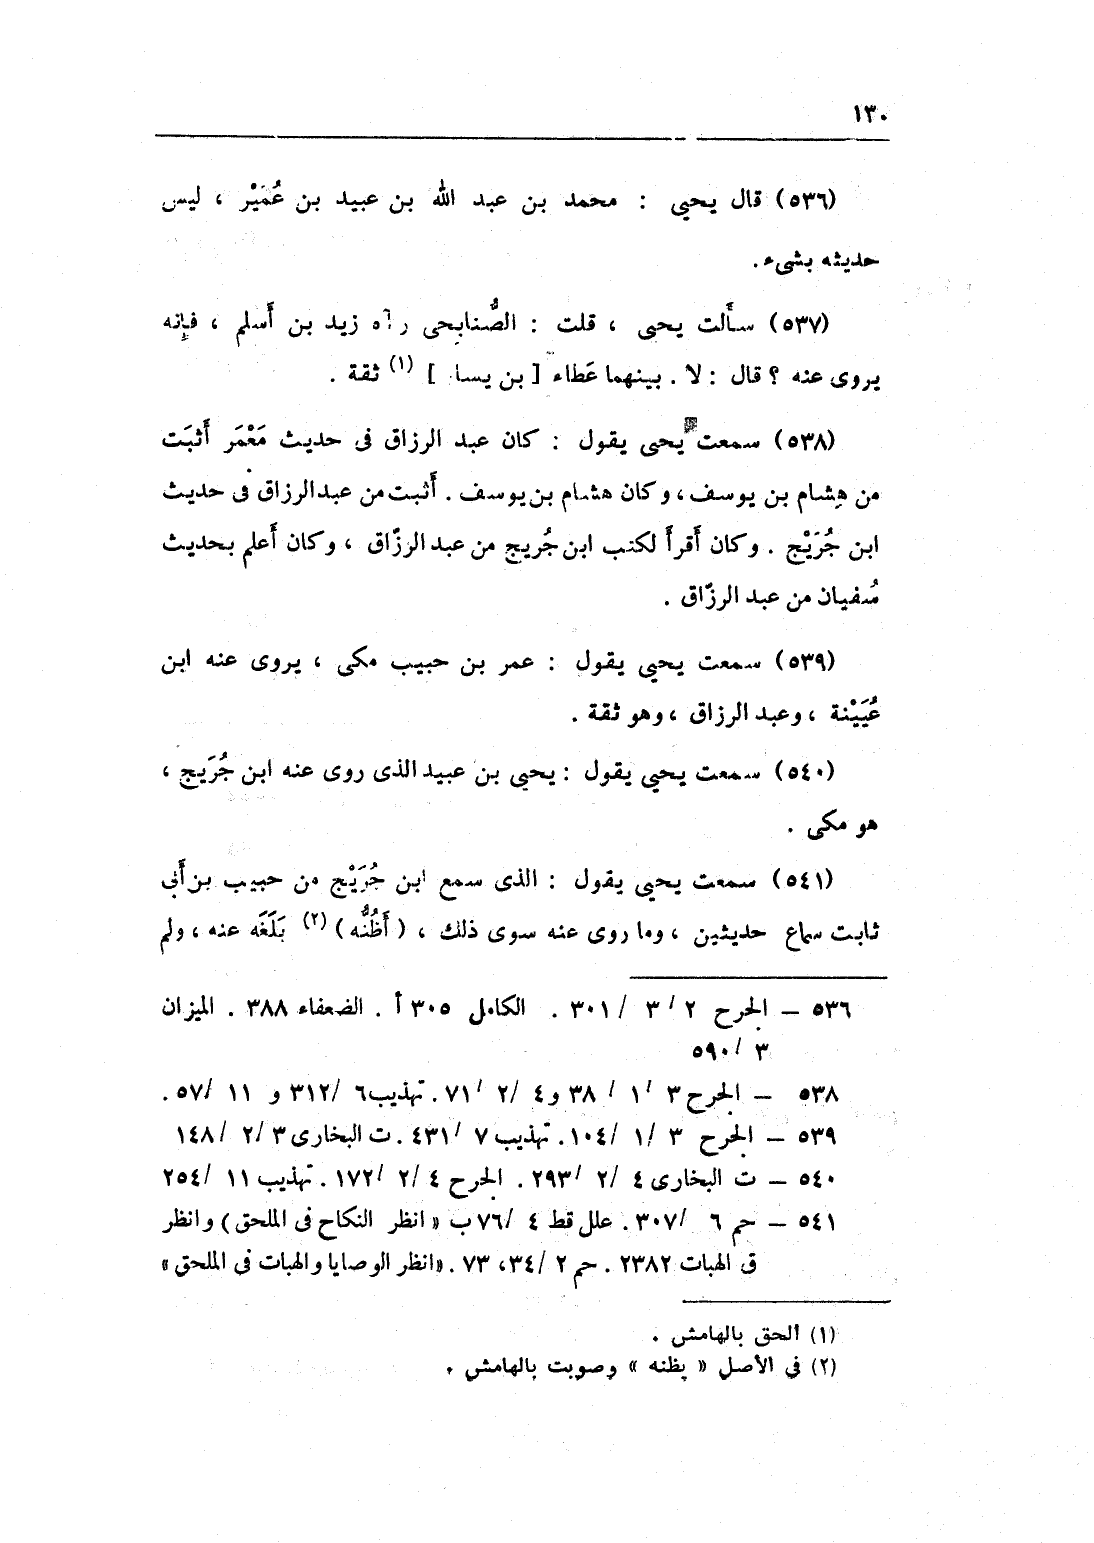 ١٣٠
(٥٣٦) قال يحيى : محمد بن عبد الله بن عبيد بن عُمَيْر ، ليس
حديثه بشىء.
(٥٣٧) سأَلت يحيى ، قلت : الصُّنابحى رآه زيد بن أَسلم ، فإنه
يروى عنه ؟ قال : لا . بينهما عَطاء [ بن يسار ] (١) ثقة .
(٥٣٨) سمعت يحيى يقول : كان عبد الرزاق فى حديث مَعْمَر أَثبَت
من هِشام بن يوسف ، وكان هشام بن يوسف . أَثبت من عبد الرزاق فى حديث
ابن جُرَيْج . وكان أَقرأَ لكتب ابن جُريج من عبد الرزّاق ، وكان أَعلم بحديث
سُفيان من عبد الرزّاق .
(٥٣٩) سمعت يحيى يقول : عمر بن حبيب مكى ، يروى عنه ابن
عُيَيْنة ، وعبد الرزاق ، وهو ثقة .
(٥٤٠) سمعت يحيى يقول : يحيى بن عبيد الذى روى عنه ابن جُرَيج ،
هو مكى .
(٥٤١) سمعت يحيى يقول : الذى سمع ابن جُرَيْج من حبيب بن أَبى
ثابت سماع حديثين ، وما روى عنه سوى ذلك ، ( أَظُنُّه ) (٢) بَلَغَه عنه ، ولم
٥٣٦ – الجرح ٢ / ٣ / ٣٠١ . الكامل ٣٠٥ أ . الضعفاء ٣٨٨ . الميزان
٣ / ٥٩٠
٥٣٨ – الجرح ٣ / ١ / ٣٨ و ٤ / ٢ / ٧١ . تهذيب ٦ / ٣١٢ و ١١ / ٥٧ .
٥٣٩ – الجرح ٣ / ١ / ١٠٤ . تهذيب ٧ / ٤٣١ . ت البخارى ٣ / ٢ / ١٤٨
٥٤٠ – ت البخارى ٤ / ٢ / ٢٩٣ . الجرح ٤ / ٢ / ١٧٢ . تهذيب ١١ / ٢٥٤
٥٤١ – حم ٦ / ٣٠٧ . علل قط ٤ / ٧٦ ب « انظر النكاح فى الملحق ) وانظر
ق الهبات ٢٣٨٢ . حم ٢ / ٣٤، ٧٣ . «انظر الوصايا والهبات فى الملحق»
(١) ألحق بالهامش .
(٢) فى الأصل « يظنه » وصوبت بالهامش .